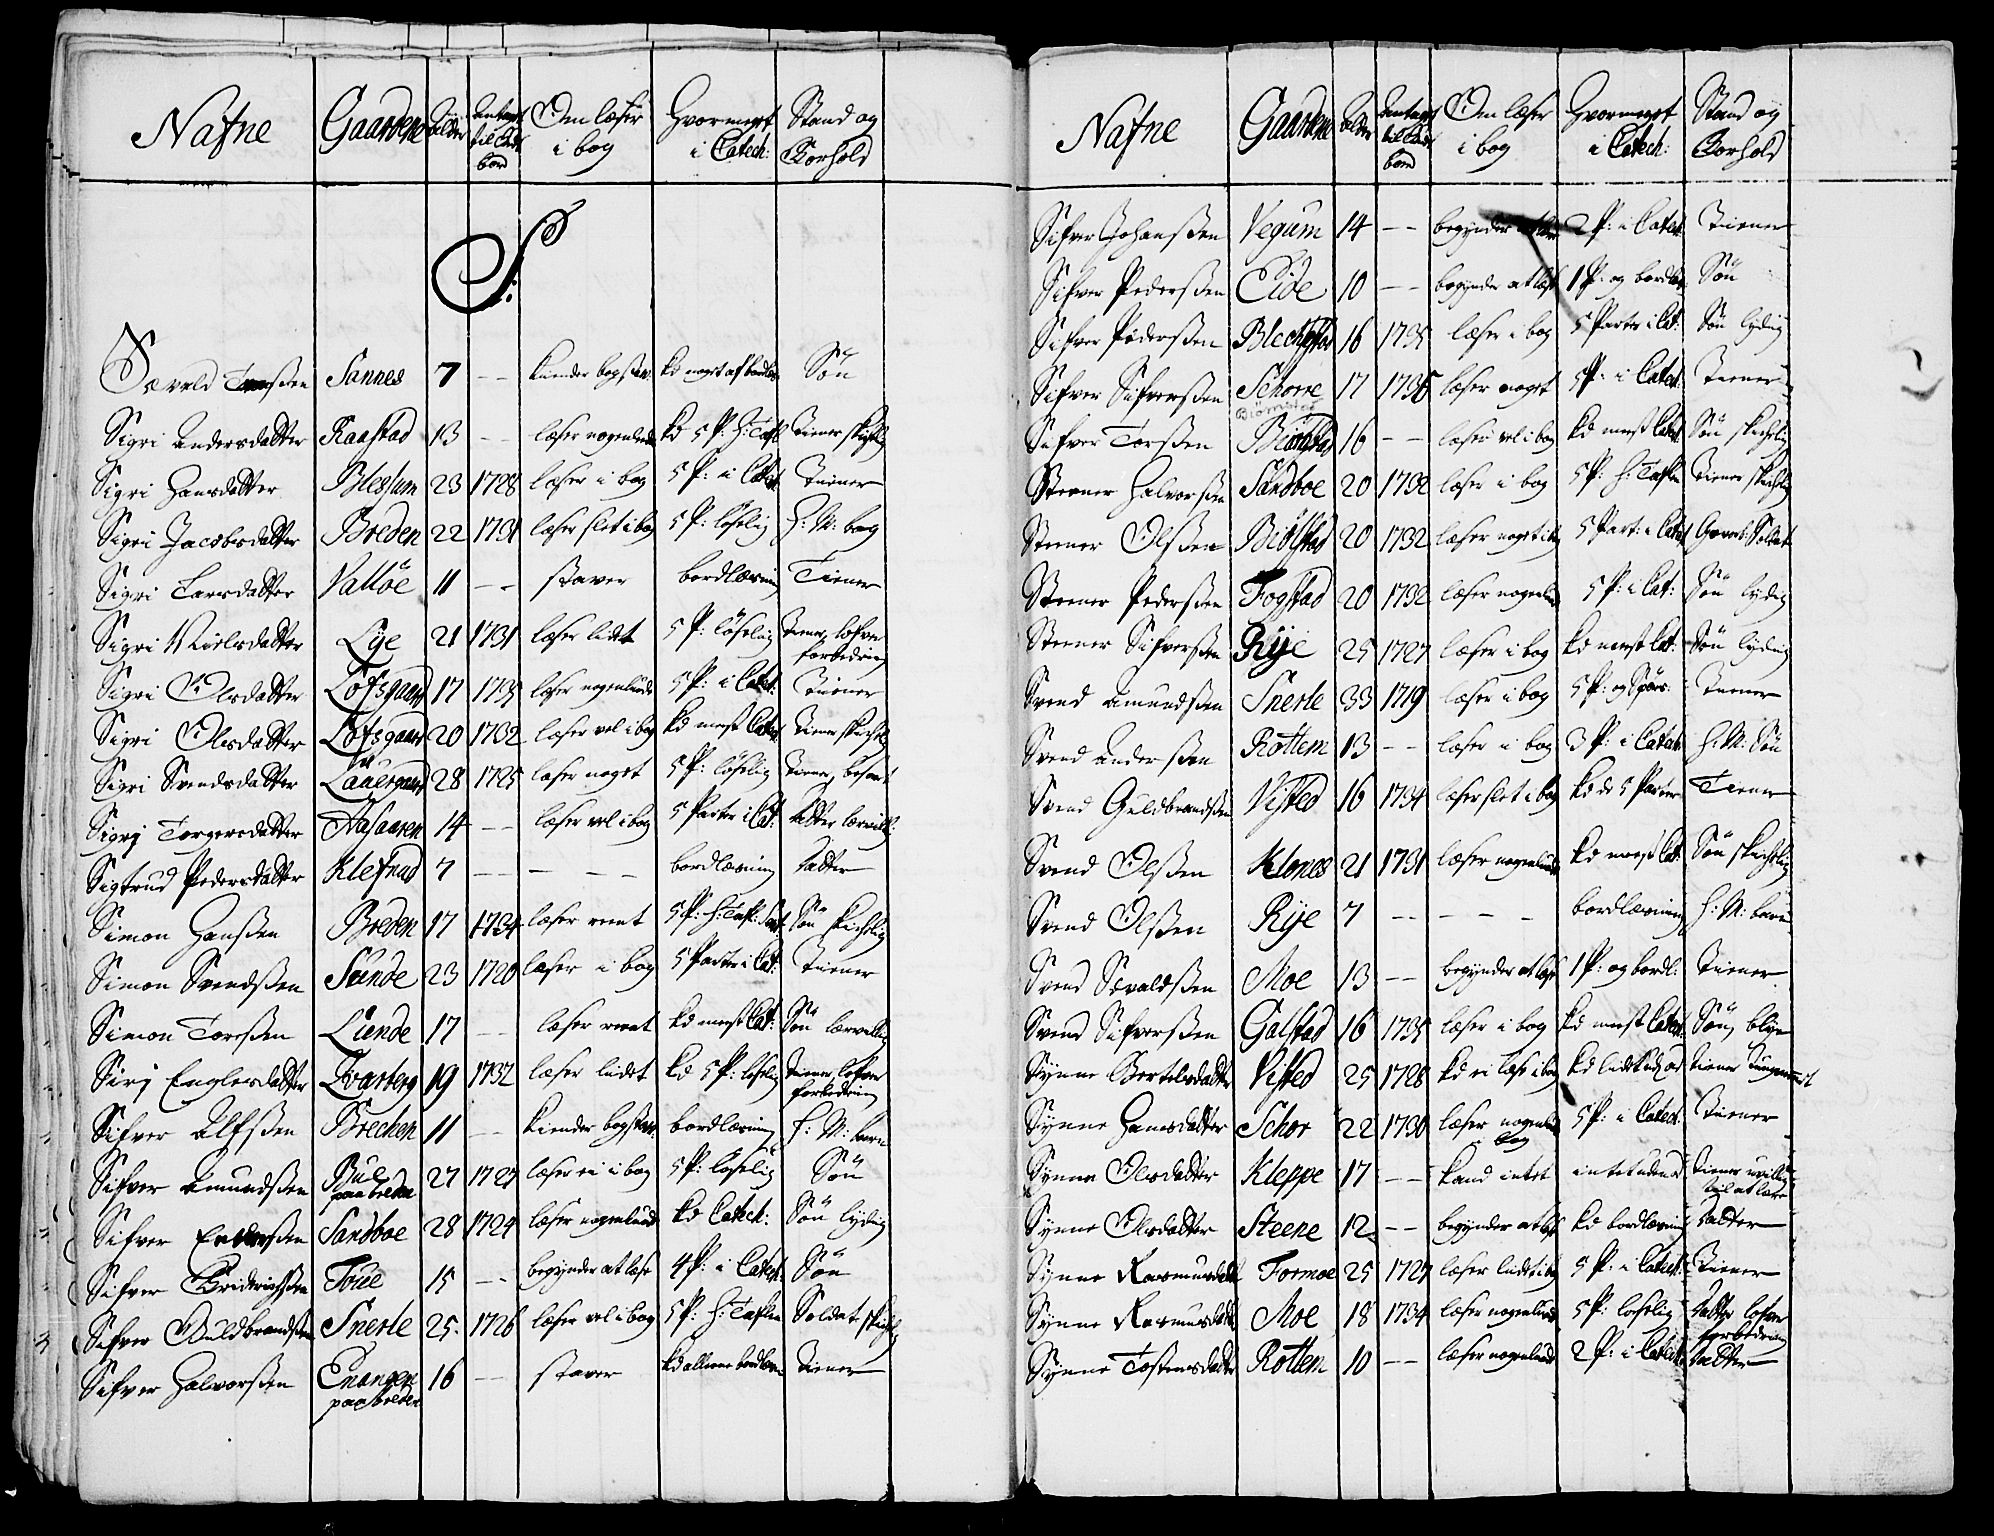 Nafne Gaardene Alder Antagen til Guds bord Om læser i bog Hvormeget i Catech: Stand og Forhold
S:
Sævald Torsßen Sannes 7 -- kiender bogstav: kd noget af bordlæs Søn
Sigri Andersdatter Raastad 13 -- læser nogenlunde kd 5 P: H: Tafl Tiener skickelig
Sigri Hansdatter Blessum 23 1728 læser i bog 5 P: i Catech Tiener
Sigri Jacobsdatter Breden 22 1731 læser slet i bog 5 P: løselig H: M: bog
Sigri Larsdatter Valløe 11 -- staver bordlæsning Tiener
Sigri Nielsdatter Lye 21 1731 læser lidt 5 P: løselig Tiener, lofver forbedring
Sigri Olesdatter Lofsgaard 17 1735 læser nogenlunde 5 P: i Catech: Tiener
Sigri Olesdatter Lofsgaard 20 1732 læser vel i bog kd meest Catech Tiener skickelig
Sigri Svendsdatter Lauersgaard 28 1725 læser noget 5 P: løselig Tiener, besant
Sigri Torgersdatter Aasaaren 14 -- læser vel i bog 5 Parter i Cat: datter lærvillig
Sigtrud Pedersdatter Klefstad 7 -- -- bordlæsning datter
Simon Hansßen Breden 17 1734 læser reent 5 P: H: Tafl: Søn skickelig
Simon Svendsßen Sunde 23 1720 læser i bog 5 Parter i Cat: Tiener
Simon Torsßen Lunde 17 -- læser reent kd meest Cat: Søn lærvillig
Siri Englesdatter Qvarberg 19 1732 læser lidet kd 5 P: løselig Tiener, lofver forbedring
Sifver Alfsßen Brechen 11 -- kiender bogstav: bordlæsning H: M: barn
Sifver Amundsßen Bue paa breden 27 1727 læser ei i bog 5 P: løselig Søn
Sifver Endersßen Sandboe 28 1724 læser nogenlund kd Catech: Søn lydig
Sifver Friderichsßen Toue 15 -- begynder at læse 4 P: i Catech: Søn
Sifver Guldbrandsßen Snerle 25 1726 læser vel i bog 5 P: H: Taflen Soldat skickelig
Sifver Halvorsßen Enangen paa breden 16 -- staver kd alleene bordlæsn Tiener
Nafne Gaardene Alder Antagen til Guds bord Om læser i bog Hvormeget i Catech: Stand og Forhold
Sifver Johansßen Vegum 14 -- begynder at læse 2 P: i Catech: Tiener
Sifver Pedersßen Eide 10 -- begynder at læse 1 P: og bordlæs Søn
Sifver Pedersßen Blechestad 16 1735 læser i bog 5 Parter i Cat: Søn lydig
Sifver Sifversßen Schorre 17 1735 læser noget 5 P: i Catech: Tiener
Biømstad
Sifver Torsßen Biømstad 16 -- læser vel i bog kd meest Catech Søn skickelig
Steener Halvorsßen Sandboe 20 1732 læser i bog 5 P: H: Taflen Tiener skickelig
Steener Olsßen Biølstad 20 1732 læser noget i bog 5 Part: i Catech Gevorb: Soldat
Steener Pedersßen Fogstad 20 1732 læser nogenlund 5 P: i Cat: Søn lydig
Steener Sifversßen Rye 25 1727 læser i bog kd meest Cat: Søn lydig
Svend Amundsßen Snerle 33 1719 læser i bog 5 P: og Spørs: Tiener
Svend Andersßen Rottem 13 -- læser i bog 3 P: i Catech: H: M: Søn
Svend Guldbrandsßen Visted 16 1734 læser slet i bog kd de 5 Parter Tiener
Svend Olsßen Klones 21 1731 læser nogenlunde kd meest Cat: Søn skickelig
Svend Olsßen Rye 7 -- -- bordlæsning H: M: barn
Svend Sævaldsßen Moe 13 -- begynder at læse 1 P: og bordl: Tiener
Svend Sifversßen Galstad 16 1735 læser i bog kd meest Catech: Søn, blye
Synne Bertelsdatter Visted 25 1728 kd ei læse i bog kd lidt udenad Tiener Tungnemmet
Synne Hansdatter Schor 22 1730 læser nogenlund i bog 5 P: i Catech: Tiener
Synne Olesdatter Kleppe 17 -- kand intet intet udenad Tiener uvillig til at lære
Synne Olesdatter Steene 12 -- begynder at læse kd bordlæsning datter
Synne Rasmusdatter Formoe 25 1727 læser lidet i bog 5 P: i Catech: Tiener
Synne Rasmusdatter Moe 18 1734 læser nogenlund 5 P: løselig datter lofver forbedring
Synne Tostensdatter Rottem 10 -- læser nogenlund 2 P: i Catech: datter